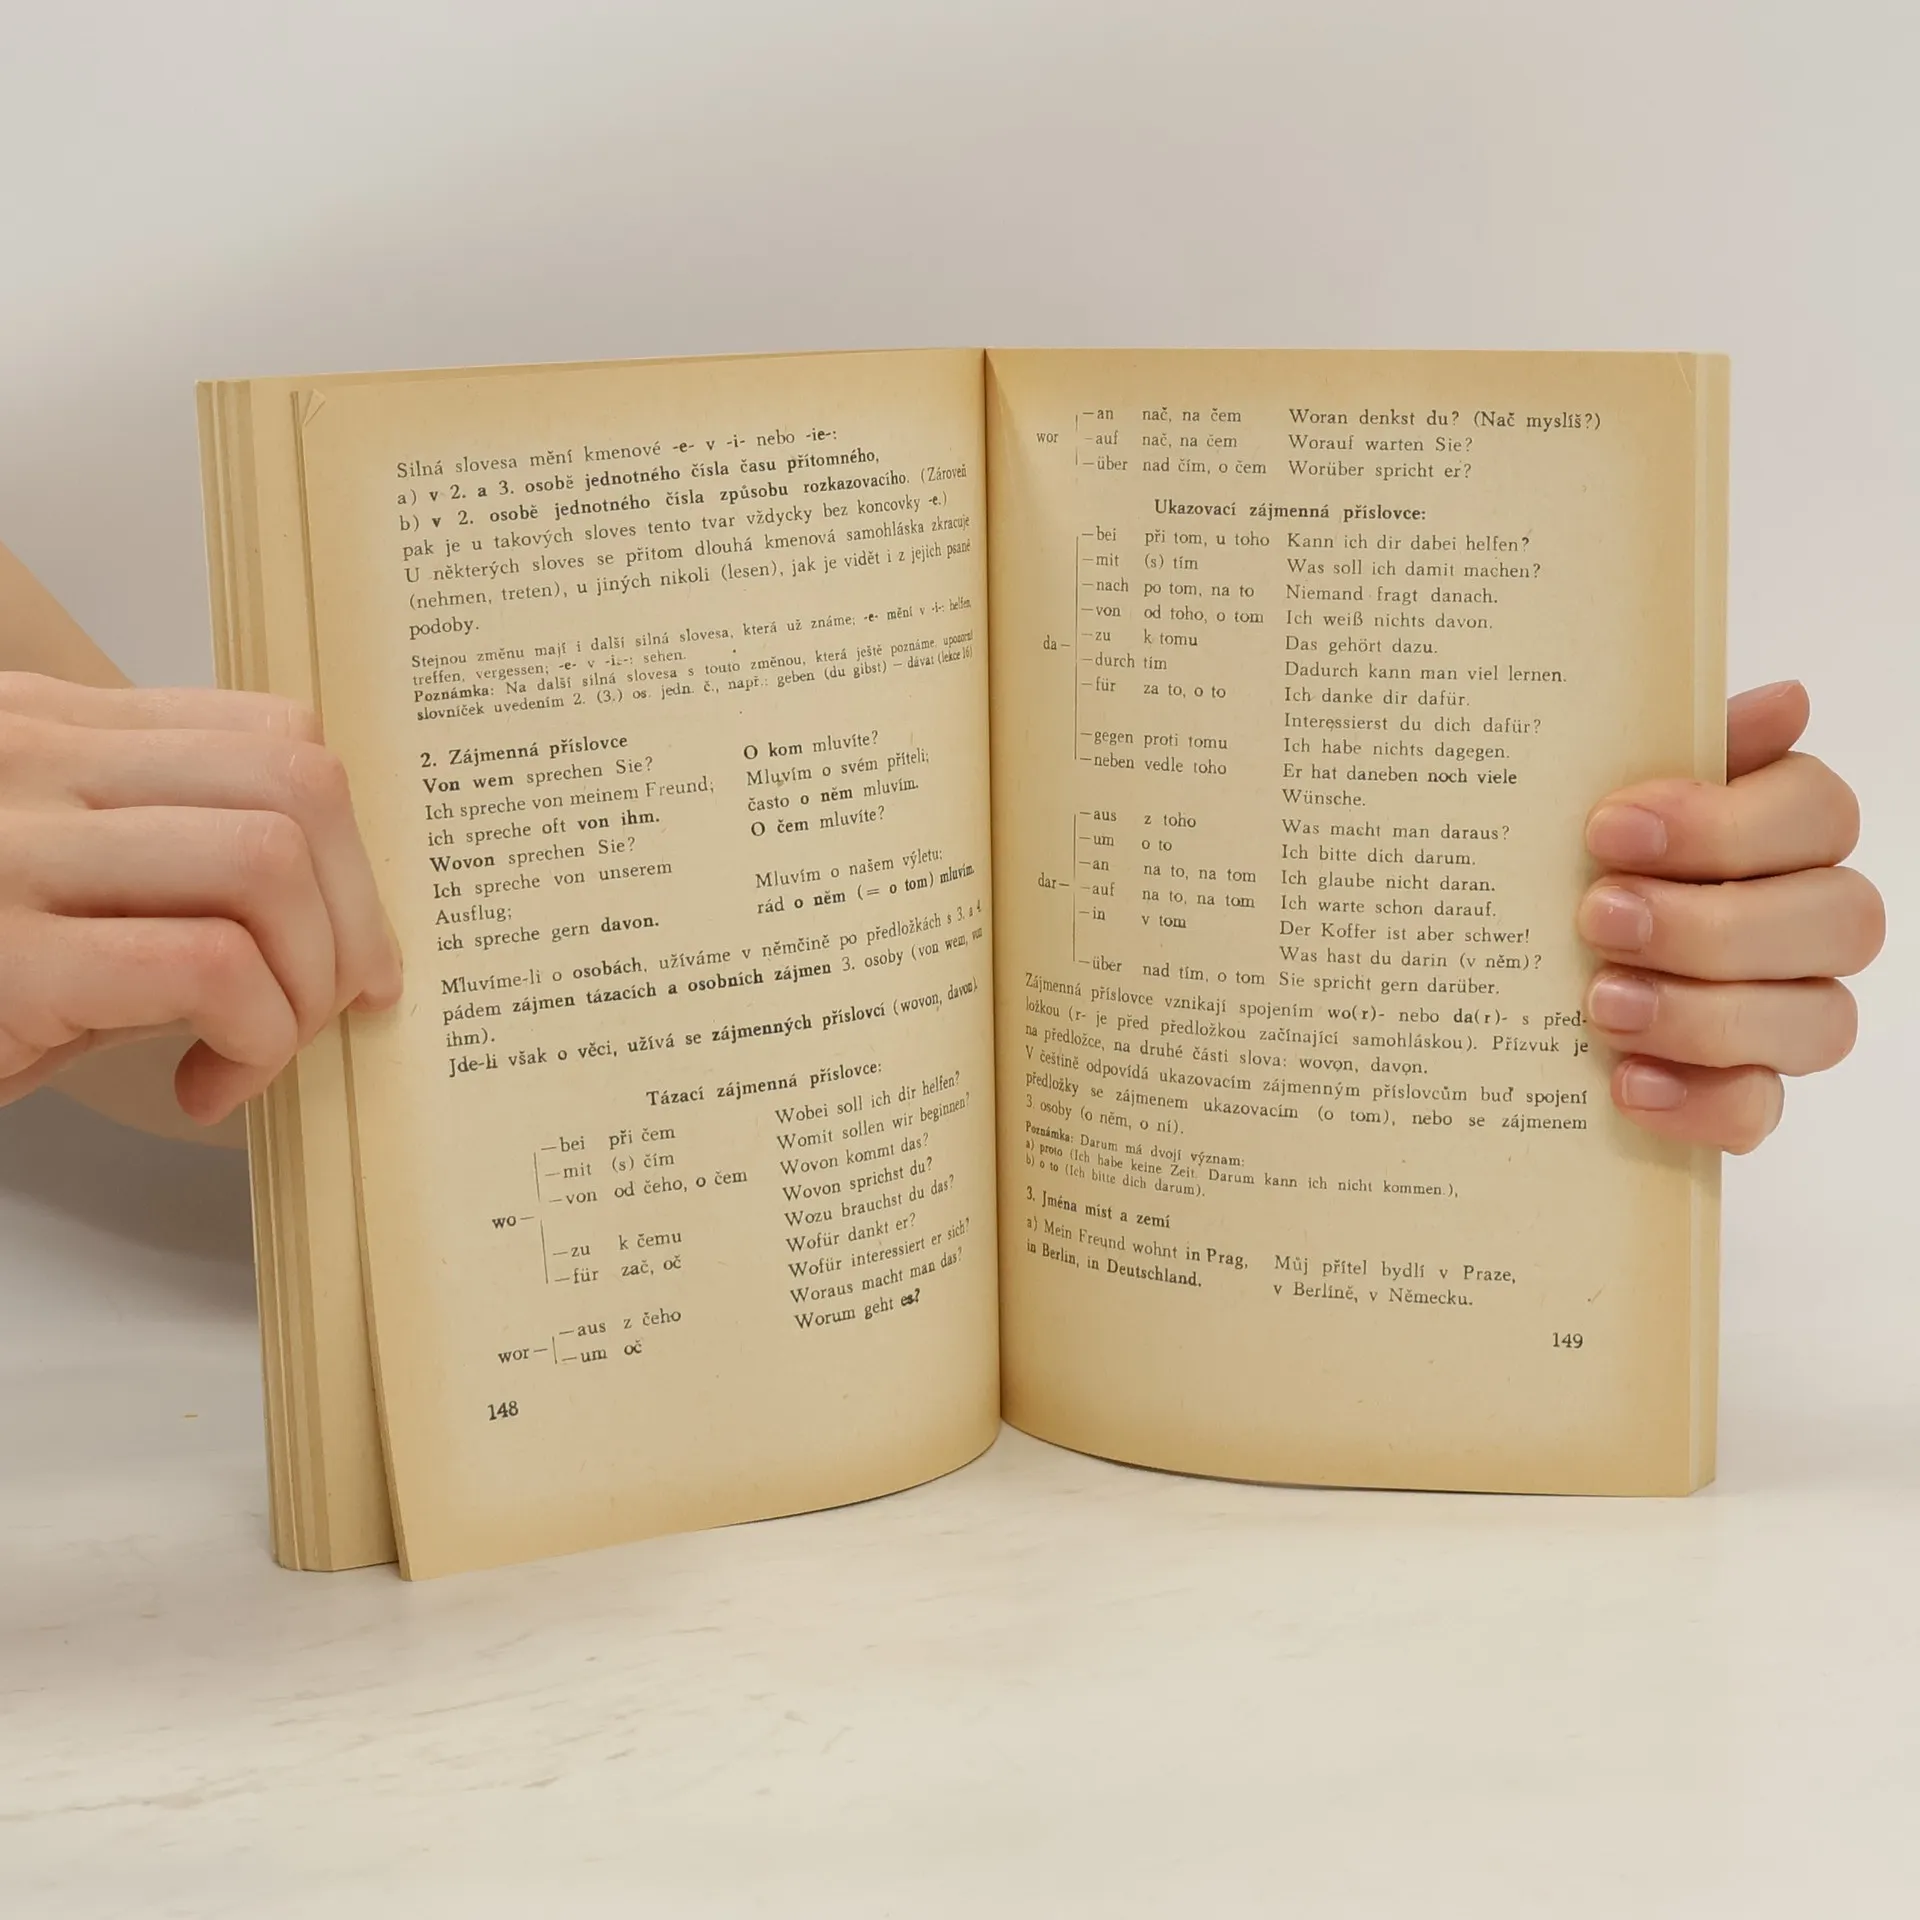 Silná slovesa mění kmenové -e- v -i- nebo -ie-:
a) v 2. a 3. osobě jednotného čísla času přítomného,
b) v 2. osobě jednotného čísla způsobu rozkazovacího. (Zároveň
pak je u takových sloves tento tvar vždycky bez koncovky -e.)
U některých sloves se přitom dlouhá kmenová samohláska zkracuje
(nehmen, treten), u jiných nikoli (lesen), jak je vidět i z jejich psané
podoby.
Stejnou změnu mají i další silná slovesa, která už známe; -e- mění v -i-: helfen,
treffen, vergessen; -e- v -ie-: sehen.
Poznámka: Na další silná slovesa s touto změnou, která ještě poznáme, upozorní
slovníček uvedením 2. (3.) os. jedn. č., např.: geben (du gibst) — dávat (lekce 16)
2. Zájmenná příslovce
Von wem sprechen Sie? O kom mluvíte?
Ich spreche von meinem Freund; Mluvím o svém příteli;
ich spreche oft von ihm. často o něm mluvím.
Wovon sprechen Sie? O čem mluvíte?
Ich spreche von unserem
Ausflug; Mluvím o našem výletu;
ich spreche gern davon. rád o něm (= o tom) mluvím.
Mluvíme-li o osobách, užíváme v němčině po předložkách s 3. a 4.
pádem zájmen tázacích a osobních zájmen 3. osoby (von wem, von
ihm).
Jde-li však o věci, užívá se zájmenných příslovcí (wovon, davon).
Tázací zájmenná příslovce:
—bei při čem Wobei soll ich dir helfen?
—mit (s) čím Womit sollen wir beginnen?
—von od čeho, o čem Wovon kommt das?
Wovon sprichst du?
wo—
—zu k čemu Wozu brauchst du das?
—für zač, oč Wofür dankt er?
Wofür interessiert er sich?
—aus z čeho Woraus macht man das?
wor— —um oč Worum geht es?
148
—an nač, na čem Woran denkst du? (Nač myslíš?)
wor —auf nač, na čem Worauf warten Sie?
—über nad čím, o čem Worüber spricht er?
Ukazovací zájmenná příslovce:
—bei při tom, u toho Kann ich dir dabei helfen?
—mit (s) tím Was soll ich damit machen?
—nach po tom, na to Niemand fragt danach.
—von od toho, o tom Ich weiß nichts davon.
da— —zu k tomu Das gehört dazu.
—durch tím Dadurch kann man viel lernen.
—für za to, o to Ich danke dir dafür.
Interessierst du dich dafür?
—gegen proti tomu Ich habe nichts dagegen.
—neben vedle toho Er hat daneben noch viele
Wünsche.
—aus z toho Was macht man daraus?
—um o to Ich bitte dich darum.
—an na to, na tom Ich glaube nicht daran.
dar— —auf na to, na tom Ich warte schon darauf.
—in v tom Der Koffer ist aber schwer!
Was hast du darin (v něm)?
—über nad tím, o tom Sie spricht gern darüber.
Zájmenná příslovce vznikají spojením wo(r)- nebo da(r)- s před-
ložkou (r- je před předložkou začínající samohláskou). Přízvuk je
na předložce, na druhé části slova: wovon, davon.
V češtině odpovídá ukazovacím zájmenným příslovcům buď spojení
předložky se zájmenem ukazovacím (o tom), nebo se zájmenem
3. osoby (o něm, o ní).
Poznámka: Darum má dvojí význam:
a) proto (Ich habe keine Zeit. Darum kann ich nicht kommen.),
b) o to (Ich bitte dich darum).
3. Jména míst a zemí
a) Mein Freund wohnt in Prag, Můj přítel bydlí v Praze,
in Berlin, in Deutschland. v Berlíně, v Německu.
149